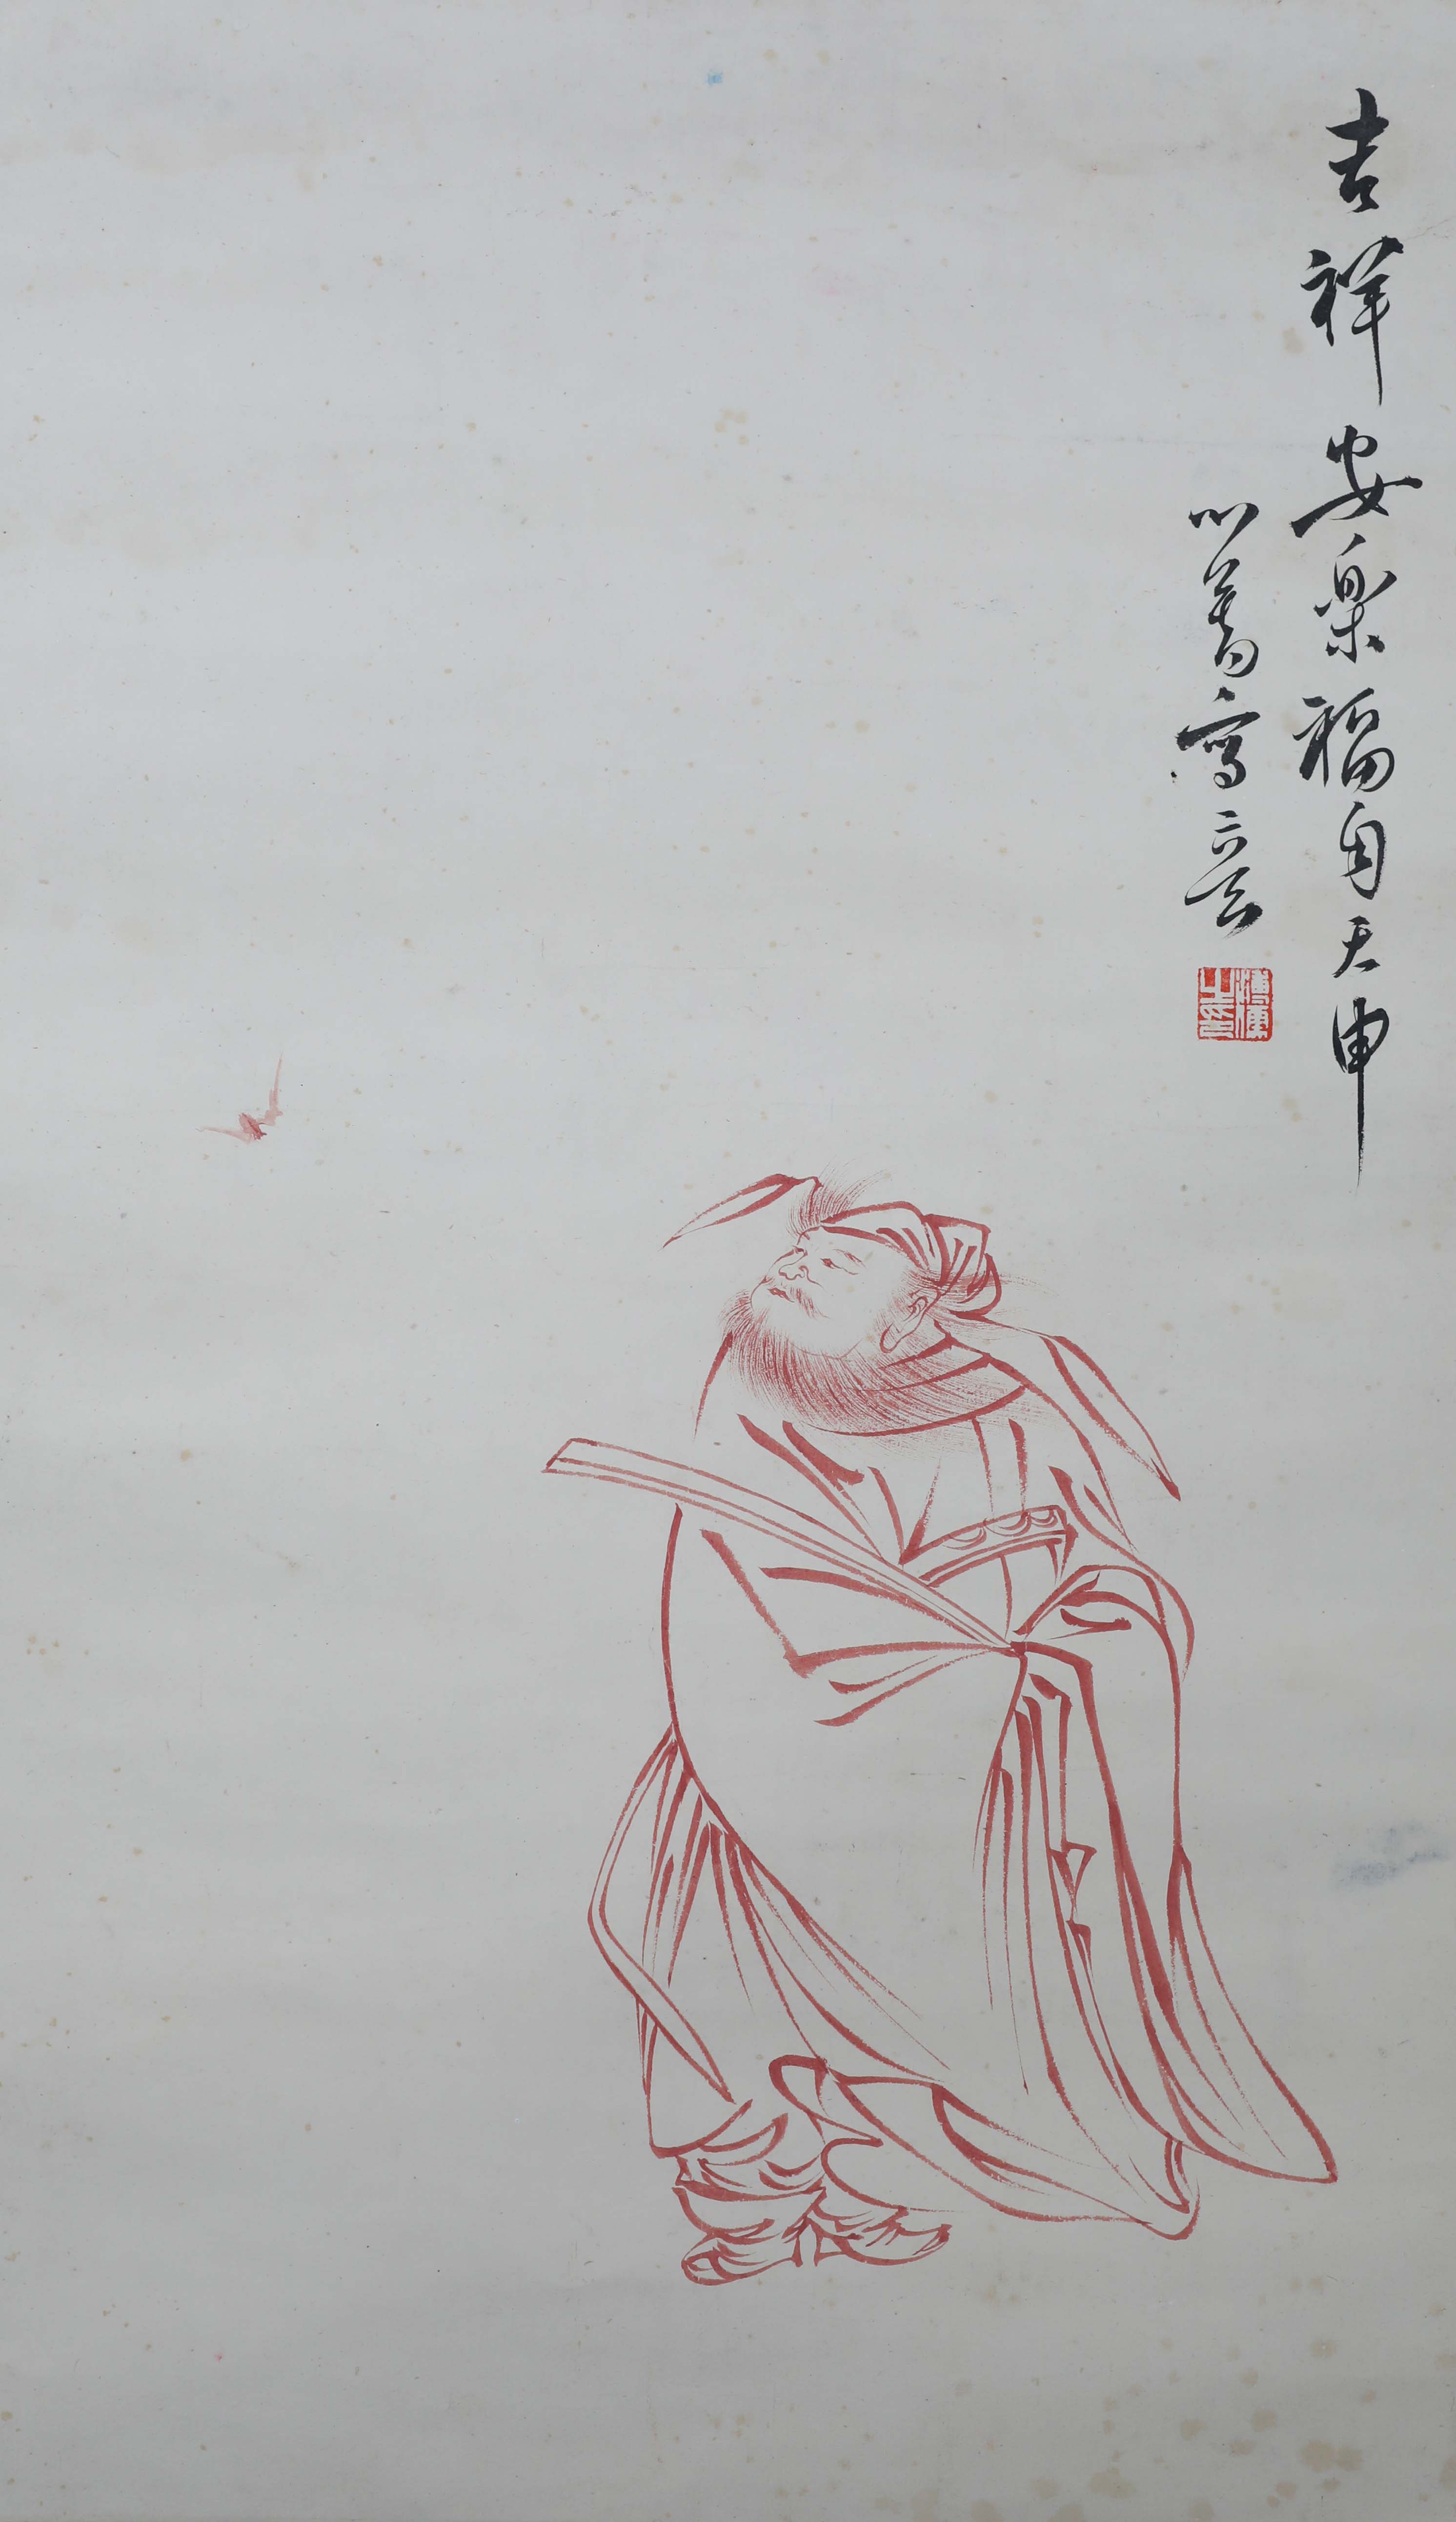 吉祥安樂福自天申
心畬寫並書
溥儒之印